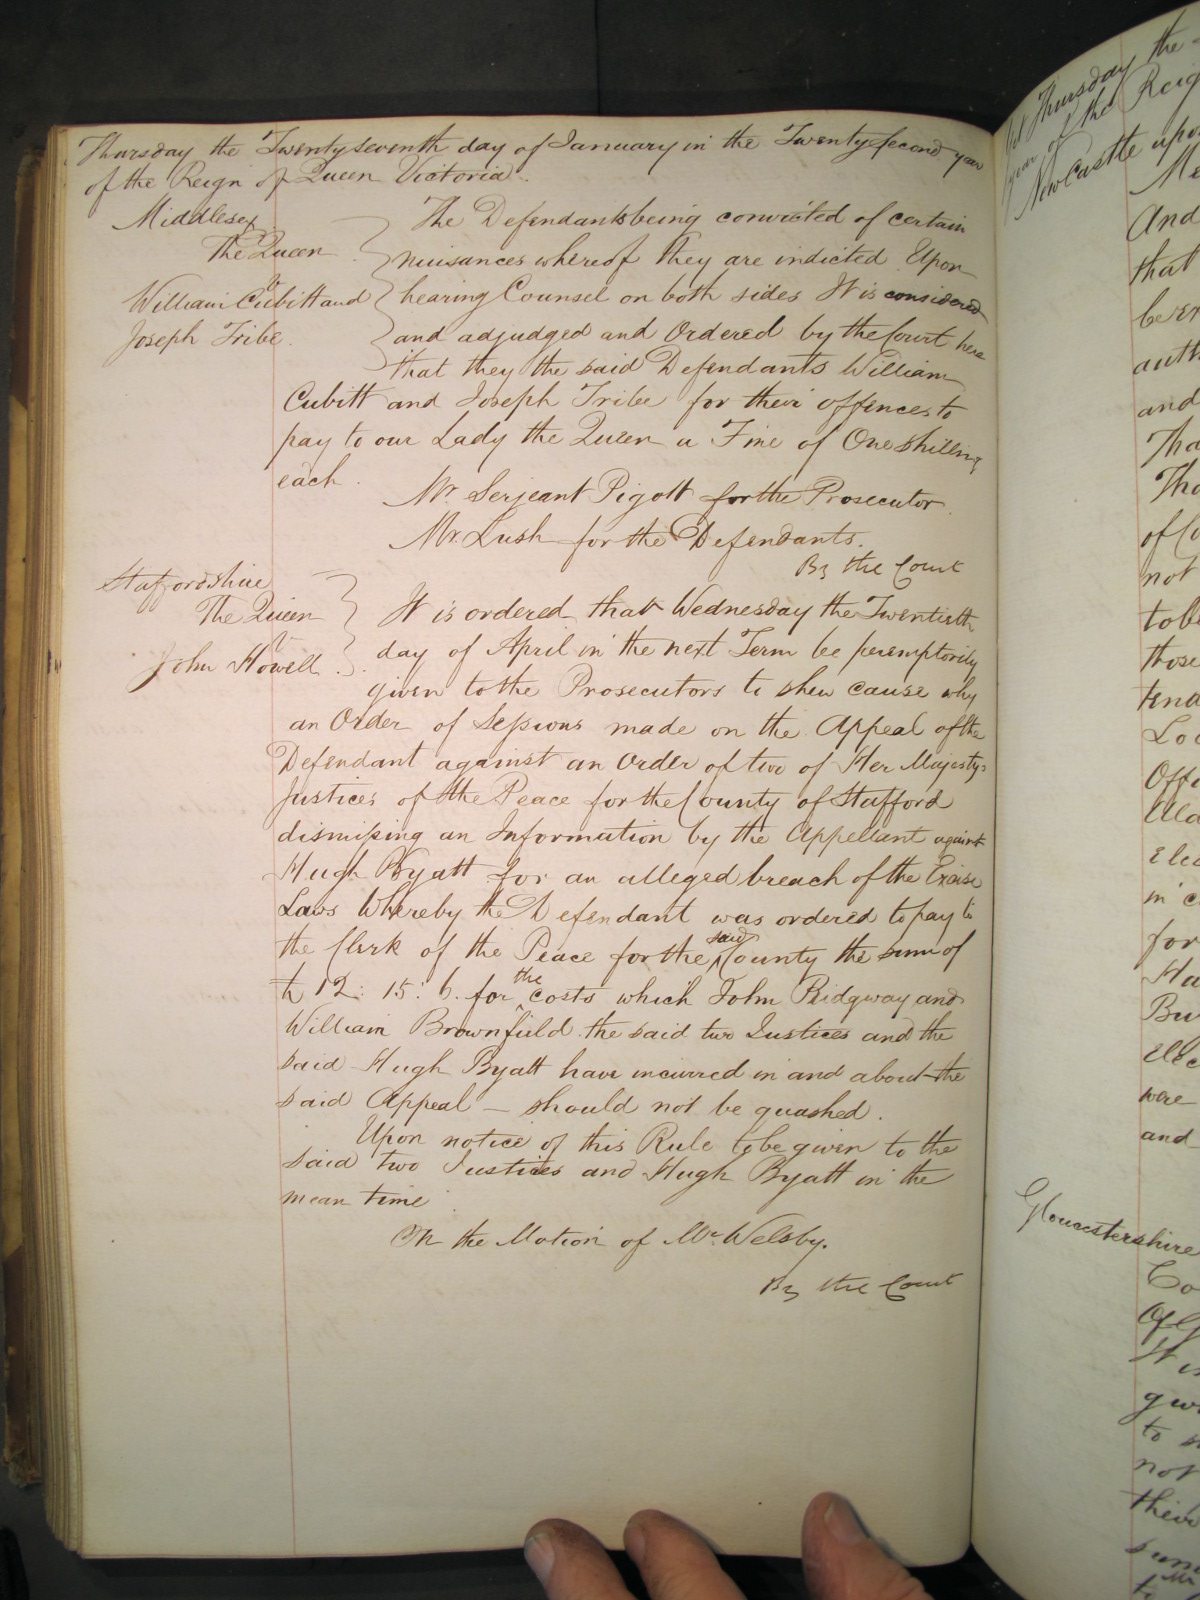 Thursday the Twenty seventh day of January in the Twenty second year
of the Reign of Queen Victoria.
Middlesex
The Queen
v
William Cubitt and
Joseph Tribe.
The Defendants being convicted of certain
nuisances whereof they are indicted Upon
hearing Counsel on both sides It is considered
and adjudged and Ordered by the Court here
that they the said Defendants William
Cubitt and Joseph Tribe for their offences to
pay to our Lady the Queen a Fine of One shilling
each.
Mr. Serjeant Pigott for the Prosecutor.
Mr. Lush for the Defendants.
By the Court
Staffordshire
The Queen
v
John Howell.
It is ordered that Wednesday the Twentieth
day of April in the next Term be peremptorily
given to the Prosecutors to shew cause why
an Order of Sessions made on the Appeal of the
Defendant against an Order of two of Her Majestys
Justices of the Peace for the County of Stafford
dismissing an Information by the Appellant against
Hugh Byatt for an alleged breach of the Excise
Laws Whereby the Defendant was ordered to pay to
the Clerk of the Peace for the said County the sum of
£12: 15: 6. for the costs which John Ridgway and
William Brownfield the said two Justices and the
said Hugh Byatt have incurred in and about the
said Appeal — should not be quashed.
Upon notice of this Rule to be given to the
said two Justices and Hugh Byatt in the
mean time
On the Motion of Mr. Welsby.
By the Court
Thursday the
year of the Reig
NewCastle upon
And
that
and
of Co
not
to be
those
for
were
and
Gloucestershire
It is
to
not
their